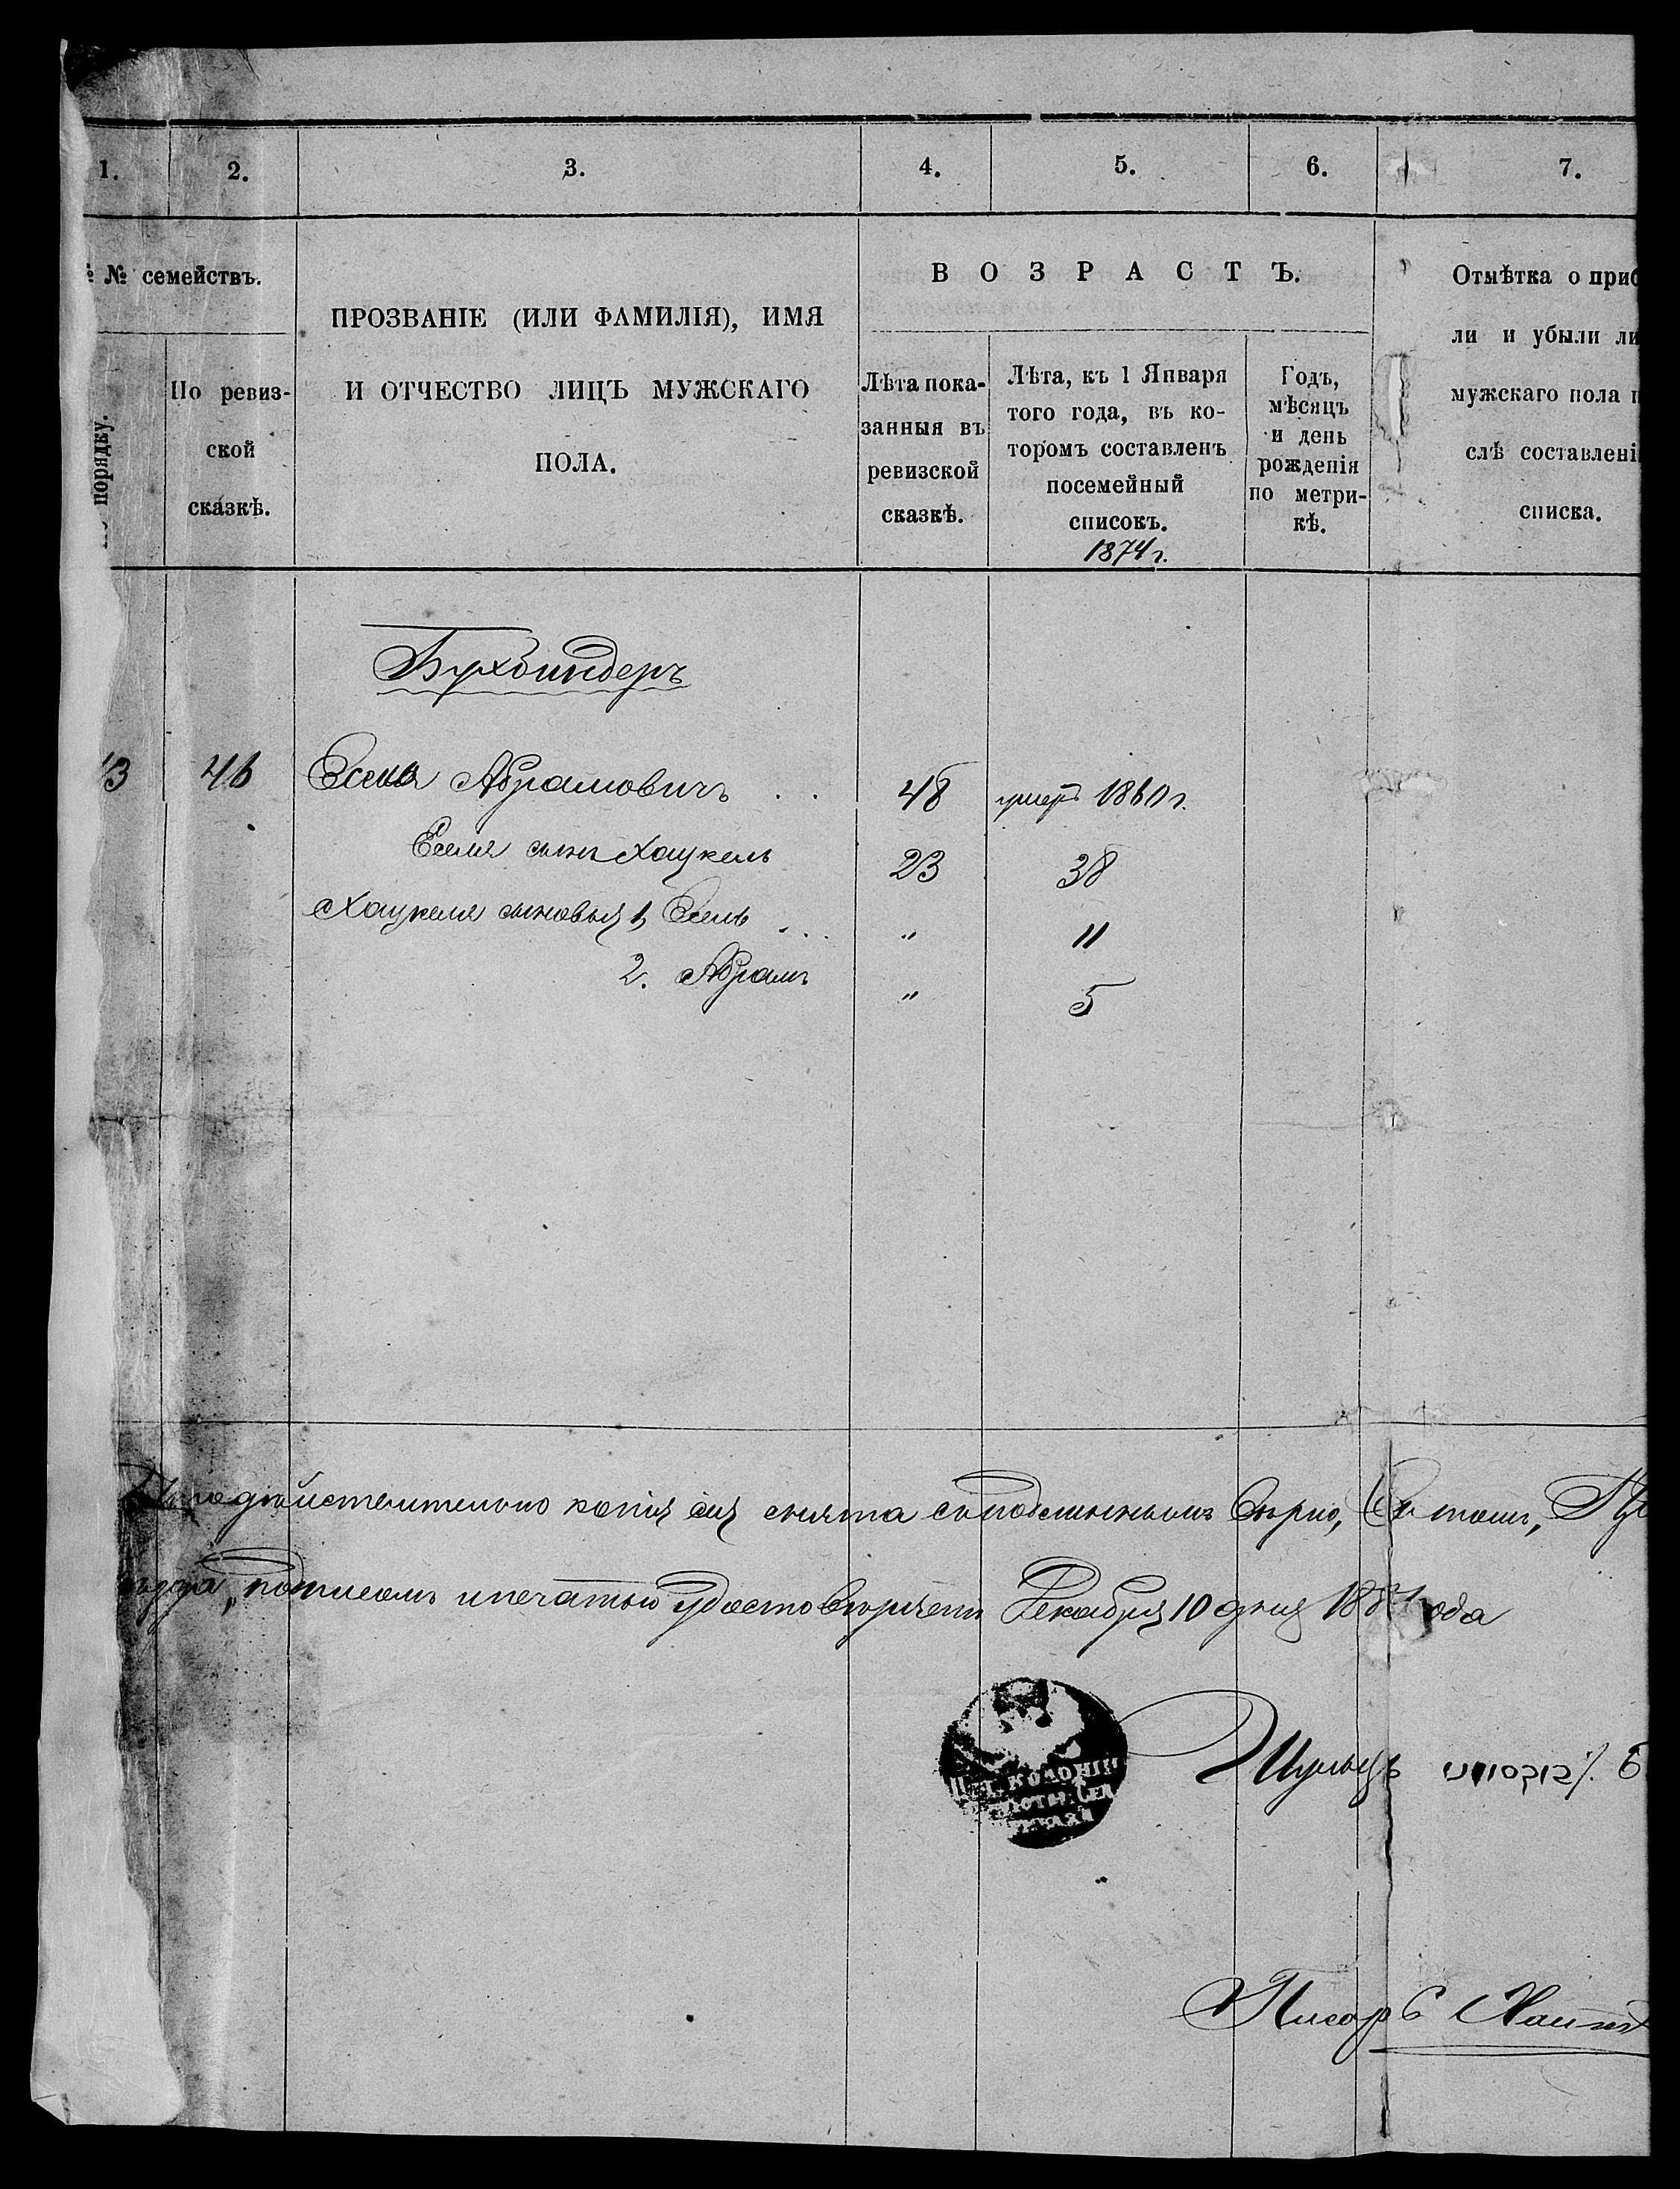 1. 2. 3. 4. 5. 6. 7.
№ семействъ.
порядку.
По ревиз-
ской
сказкѣ.
ПРОЗВАНІЕ (ИЛИ ФАМИЛІЯ), ИМЯ
И ОТЧЕСТВО ЛИЦЪ МУЖСКАГО
ПОЛА.
ВОЗРАСТЪ.
Лѣта пока-
занныя въ
ревизской
сказкѣ.
Лѣта, къ 1 Января
того года, въ ко-
торомъ составленъ
посемейный
списокъ.
1874 г.
Годъ,
мѣсяцъ
и день
рожденія
по метри-
кѣ.
Отмѣтка о приб
ли и убыли ли
мужскаго пола п
слѣ составлені
списка.
Бухбиндеръ
13 46 Есель Абрамовичъ . . 48 умеръ 1860 г.
Еселя сынъ Хацкель 23 38
Хацкеля сыновья 1, Есель . . . " 11
2. Абрамъ " 5
Что дѣйствительно копія сія снята съ подлиннымъ вѣрно, въ томъ,
подписомъ и печатью удостовѣряемъ Декабря 10 дня 188 года
КОЛОНІИ
Шульцъ
Писарь